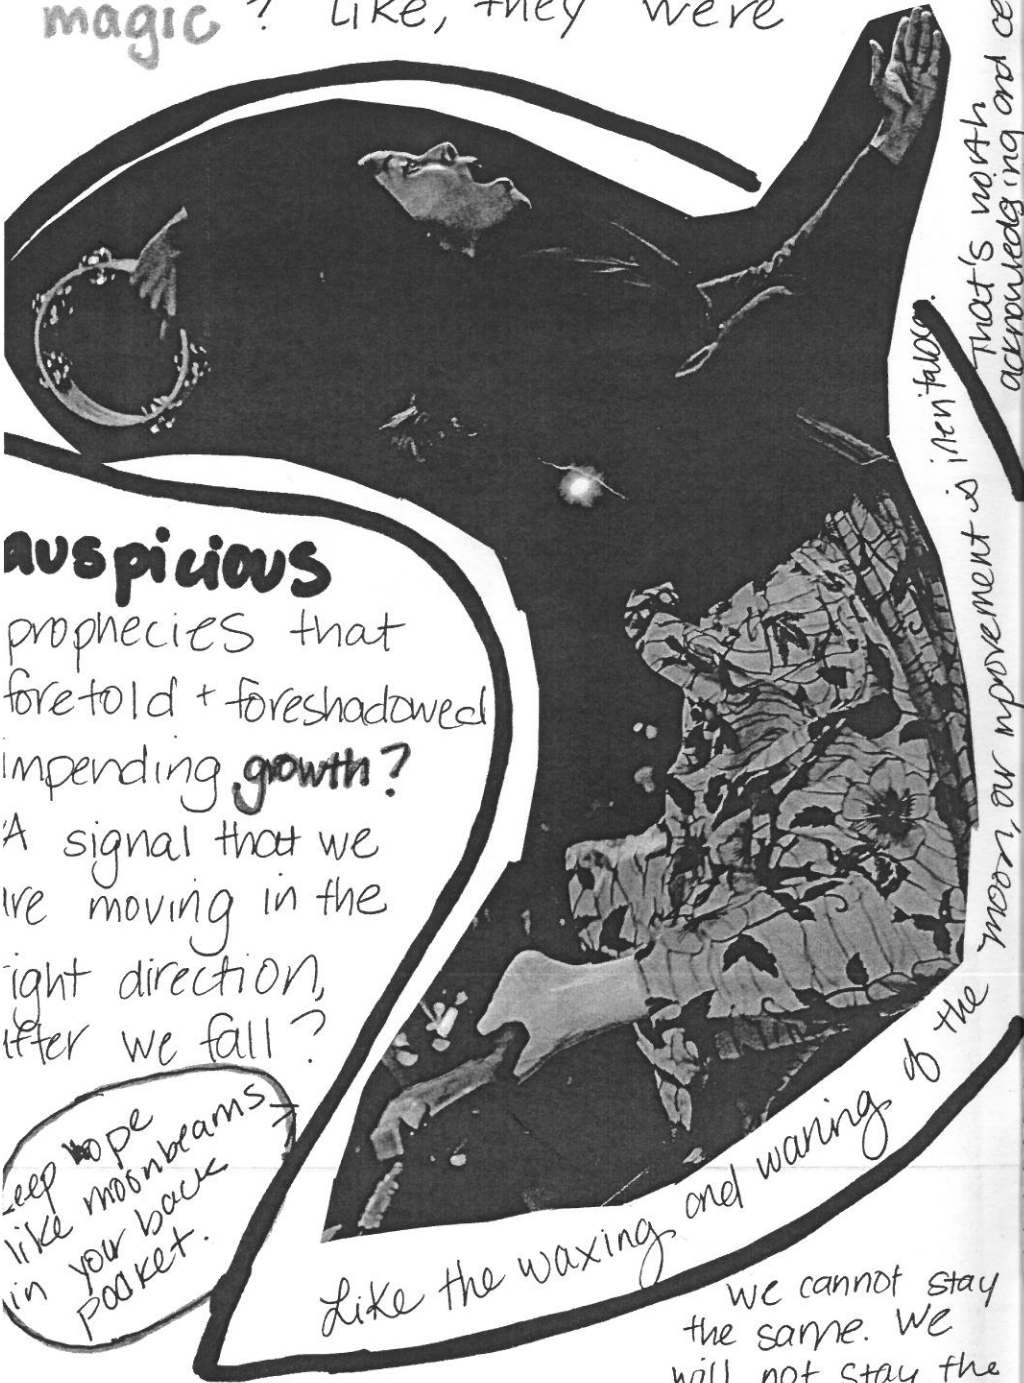 magic? Like, they were
auspicious
prophecies that
foretold + foreshadowed
impending growth?
A signal that we
are moving in the
right direction,
after we fall?
keep hope
like moonbeams
in your back
pocket.
Like the waxing and waning of the
moon, our improvement is inevitable.
That's worth
acknowledging and ce
we cannot stay
the same. We
will not stay the